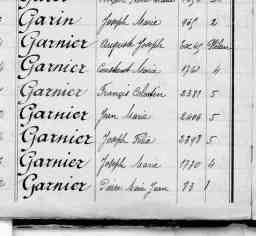 Garin Joseph Marie 969 2
Garnier Auguste Joseph
Garnier Constant Marie 1761 4
Garnier François Célestin 2381 5
Garnier Jean Marie 2406 5
Garnier Joseph Félix 2398 5
Garnier Joseph Marie 1770 4
Garnier Pierre Marie Jean 83 1